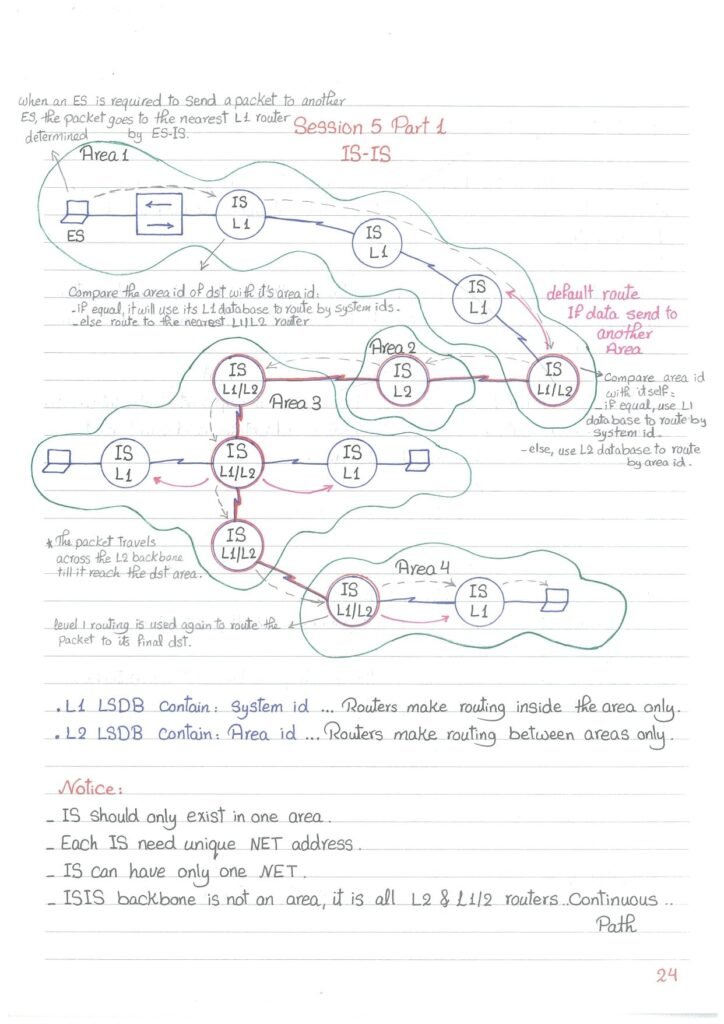 when an ES is required to send a packet to another
ES, the packet goes to the nearest L1 router
determined by ES-IS.
Session 5 Part 1
IS-IS
Area 1
ES
IS
L1
IS
L1
IS
L1
Compare the area id of dst with it's area id:
- if equal, it will use its L1 database to route by system ids.
- else route to the nearest L1/L2 router
default route
If data send to
another
Area
IS
L1/L2
Area 2
IS
L2
IS
L1/L2
Area 3
Compare area id
with itself:
- if equal, use L1
database to route by
system id.
- else, use L2 database to route
by area id.
IS
L1
IS
L1/L2
IS
L1
IS
L1/L2
* The packet travels
across the L2 backbone
till it reach the dst area.
Area 4
IS
L1/L2
IS
L1
level 1 routing is used again to route the
packet to its final dst.
. L1 LSDB Contain: System id ... Routers make routing inside the area only.
. L2 LSDB Contain: Area id ... Routers make routing between areas only.
Notice:
- IS should only exist in one area.
- Each IS need unique NET address.
- IS can have only one NET.
- ISIS backbone is not an area, it is all L2 & L1/2 routers..Continuous ..
Path
24